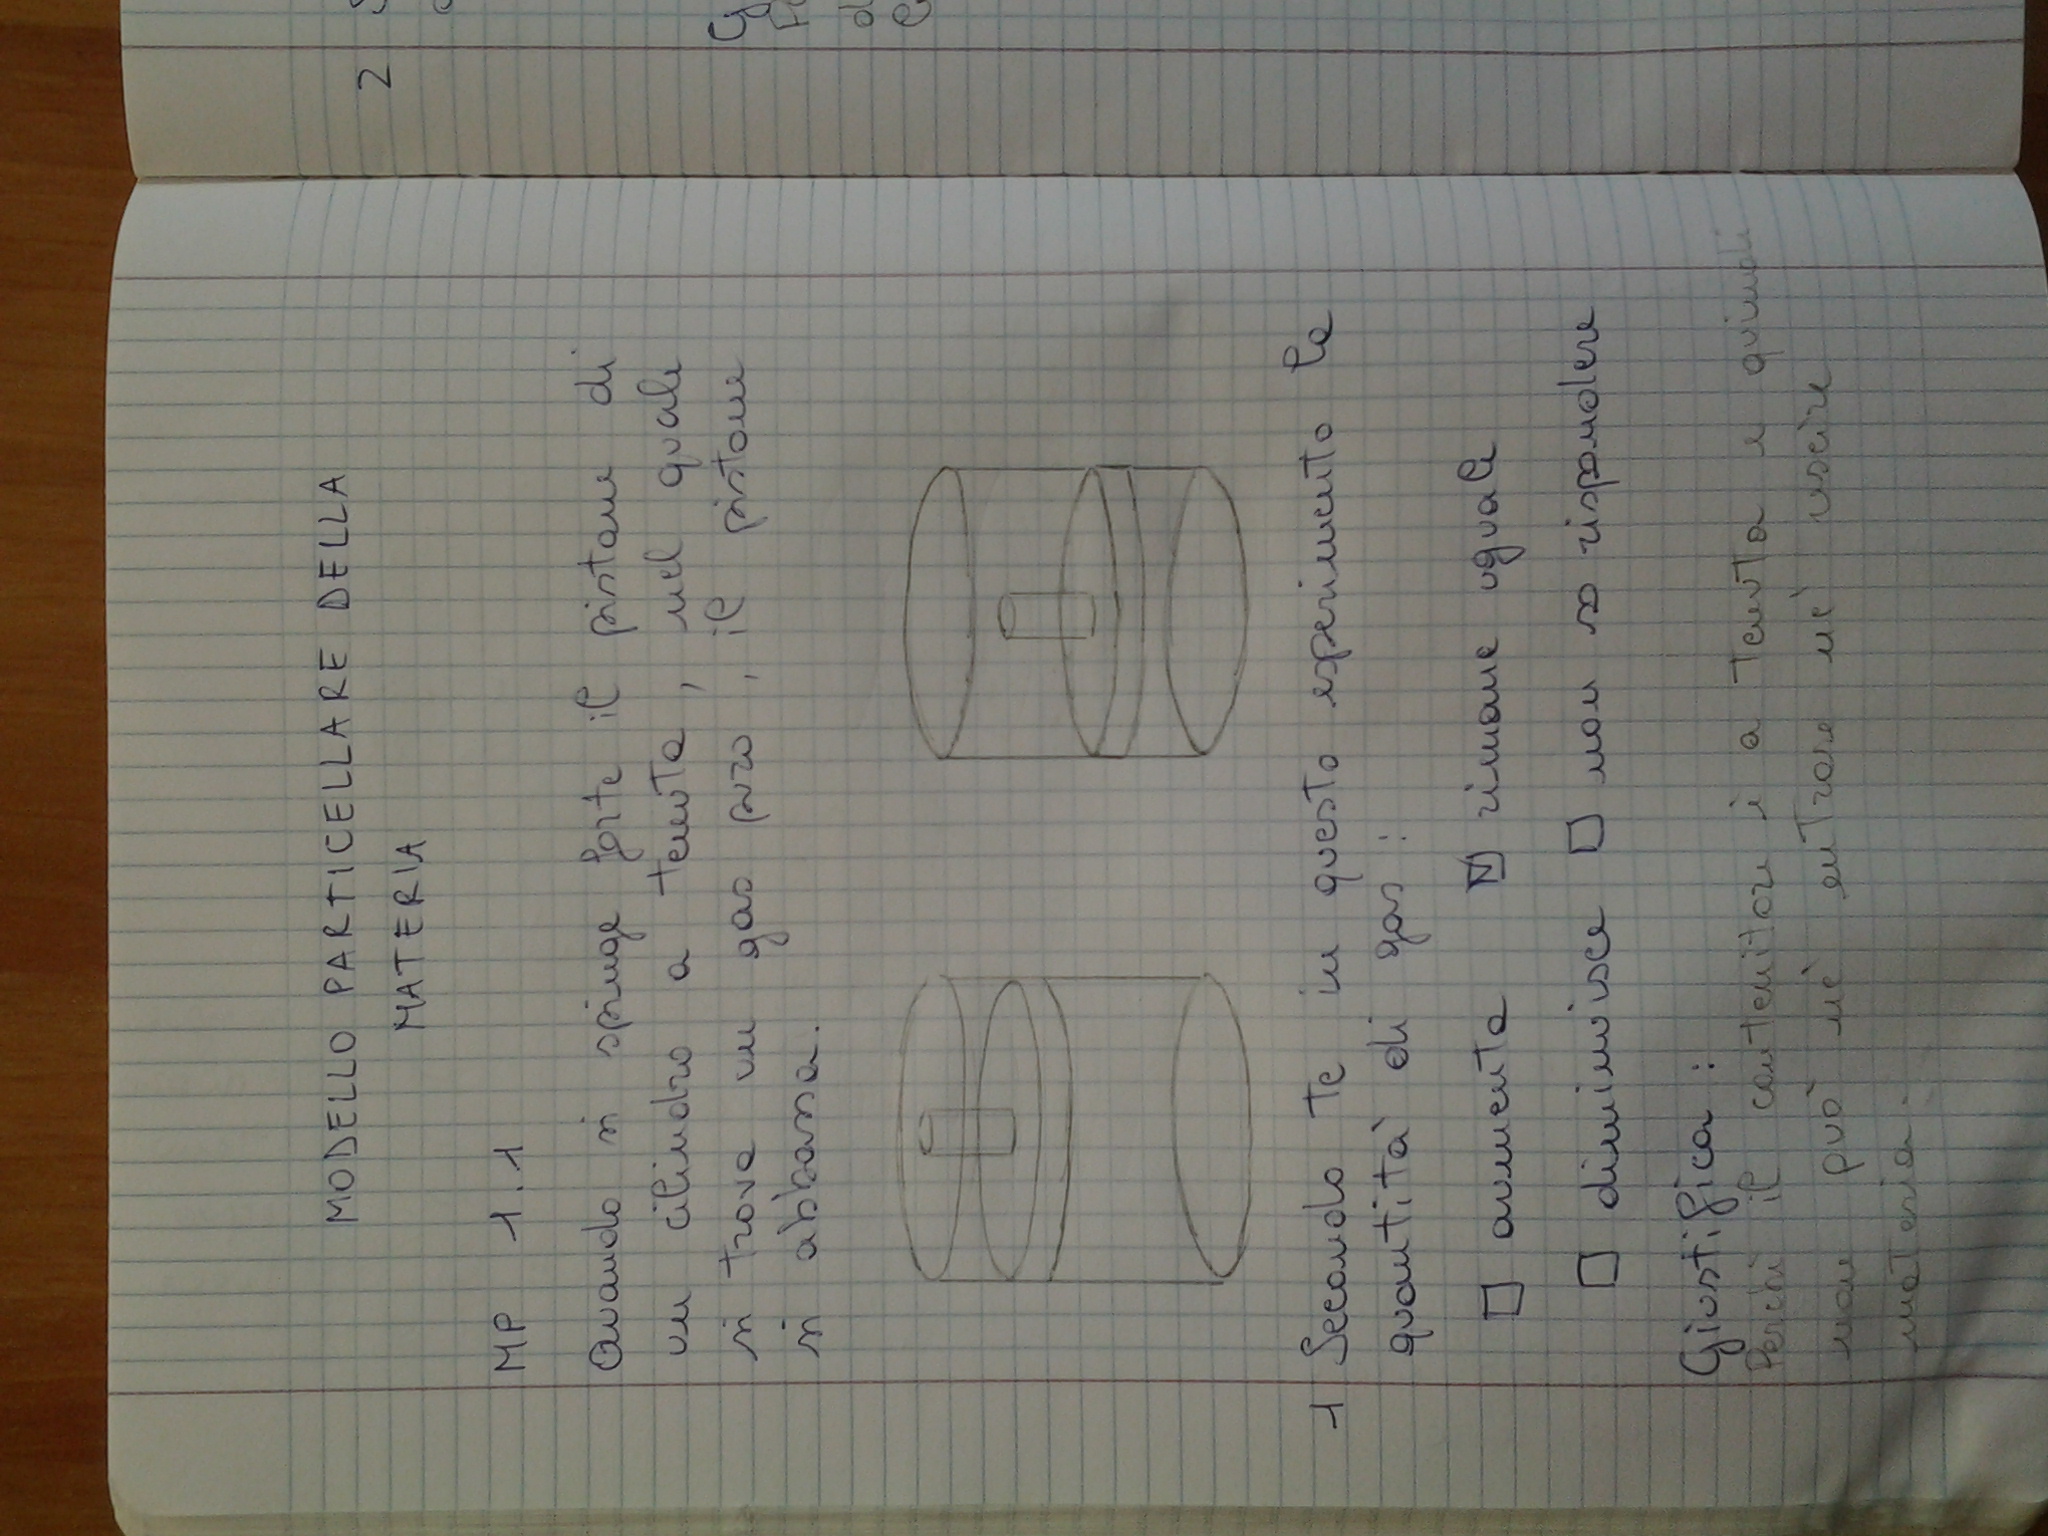 MODELLO PARTICELLARE DELLA
MATERIA
MP 1.1
Quando si spinge forte il pistone di
un cilindro a tenuta, nel quale
si trova un gas puro, il pistone
si abbassa.
1 Secondo te in questo esperimento la
quantità di gas:
aumenta rimane uguale
diminuisce non so rispondere
Giustifica:
Perché il contenitore è a tenuta e quindi
non può né entrare né uscire
materia.
2